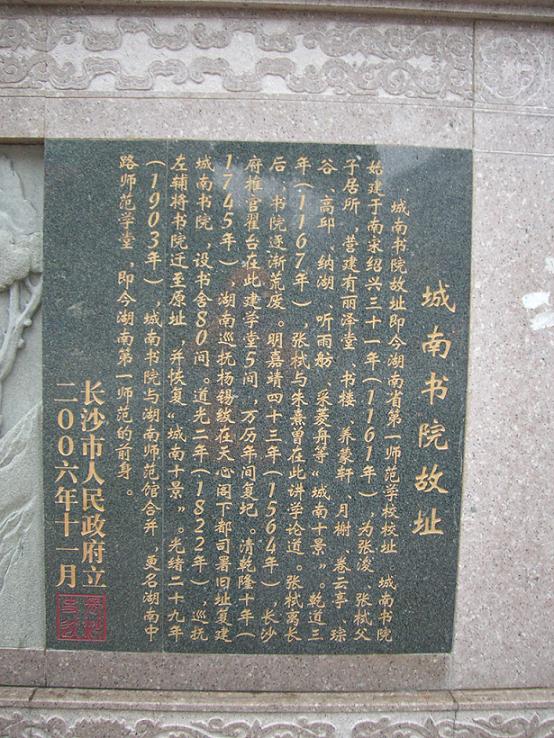 城南书院故址
城南书院故址即今湖南省第一师范学校校址。城南书院
始建于南宋绍兴三十一年(1161年),为张浚、张栻父
子居所,营建有丽泽堂、书楼、养蒙轩、月榭、卷云亭、琮
谷、高邱、纳湖、听雨舫、采菱舟等“城南十景”。乾道三
年(1167年),张栻与朱熹曾在此讲学论道。张栻离长
后,书院逐渐荒废。明嘉靖四十三年(1564年),长沙
府推官翟台在此建学堂5间,万历年间复圮。清乾隆十年(
1745年),湖南巡抚杨锡绂在天心阁下都司署旧址复建
城南书院,设书舍80间。道光二年(1822年),巡抚
左辅将书院迁至原址,并恢复“城南十景”。光绪二十九年
(1903年),城南书院与湖南师范馆合并,更名湖南中
路师范学堂,即今湖南第一师范的前身。
长沙市人民政府立
二00六年十一月